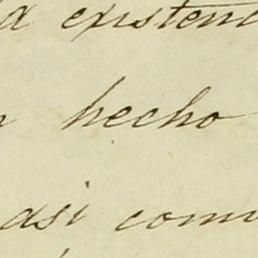 la existenc
hecho
asi com